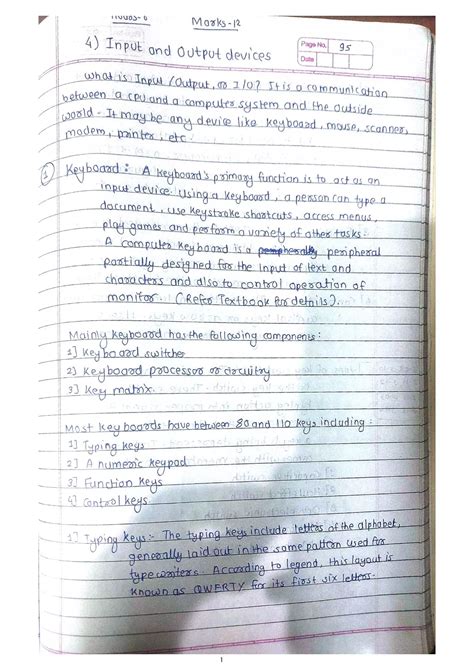 Hours-6 Marks-12
Page No. 95
Date
4) Input and Output devices
What is Input/Output, or I/O? It is a communication
between a CPU and a computer system and the outside
world. It may be any device like keyboard, mouse, scanner,
modem, printer etc.
1 Keyboard : A keyboard's primary function is to act as an
input device. Using a keyboard, a person can type a
document, use keystroke shortcuts, access menus,
play games and perform a variety of other tasks.
A computer keyboard is a peripheral
partially designed for the input of text and
characters and also to control operation of
monitor. (Refer Textbook for details).
Mainly keyboard has the following components:
1] Keyboard switches
2] Keyboard processor or circuitry
3] Key matrix.
Most keyboards have between 80 and 110 keys including:
1] Typing keys
2] A numeric keypad
3] Function keys
4] Control keys
1] Typing keys:- The typing keys include letters of the alphabet,
generally laid out in the same pattern used for
typewriters. According to legend, this layout is
known as QWERTY for its first six letters.
1